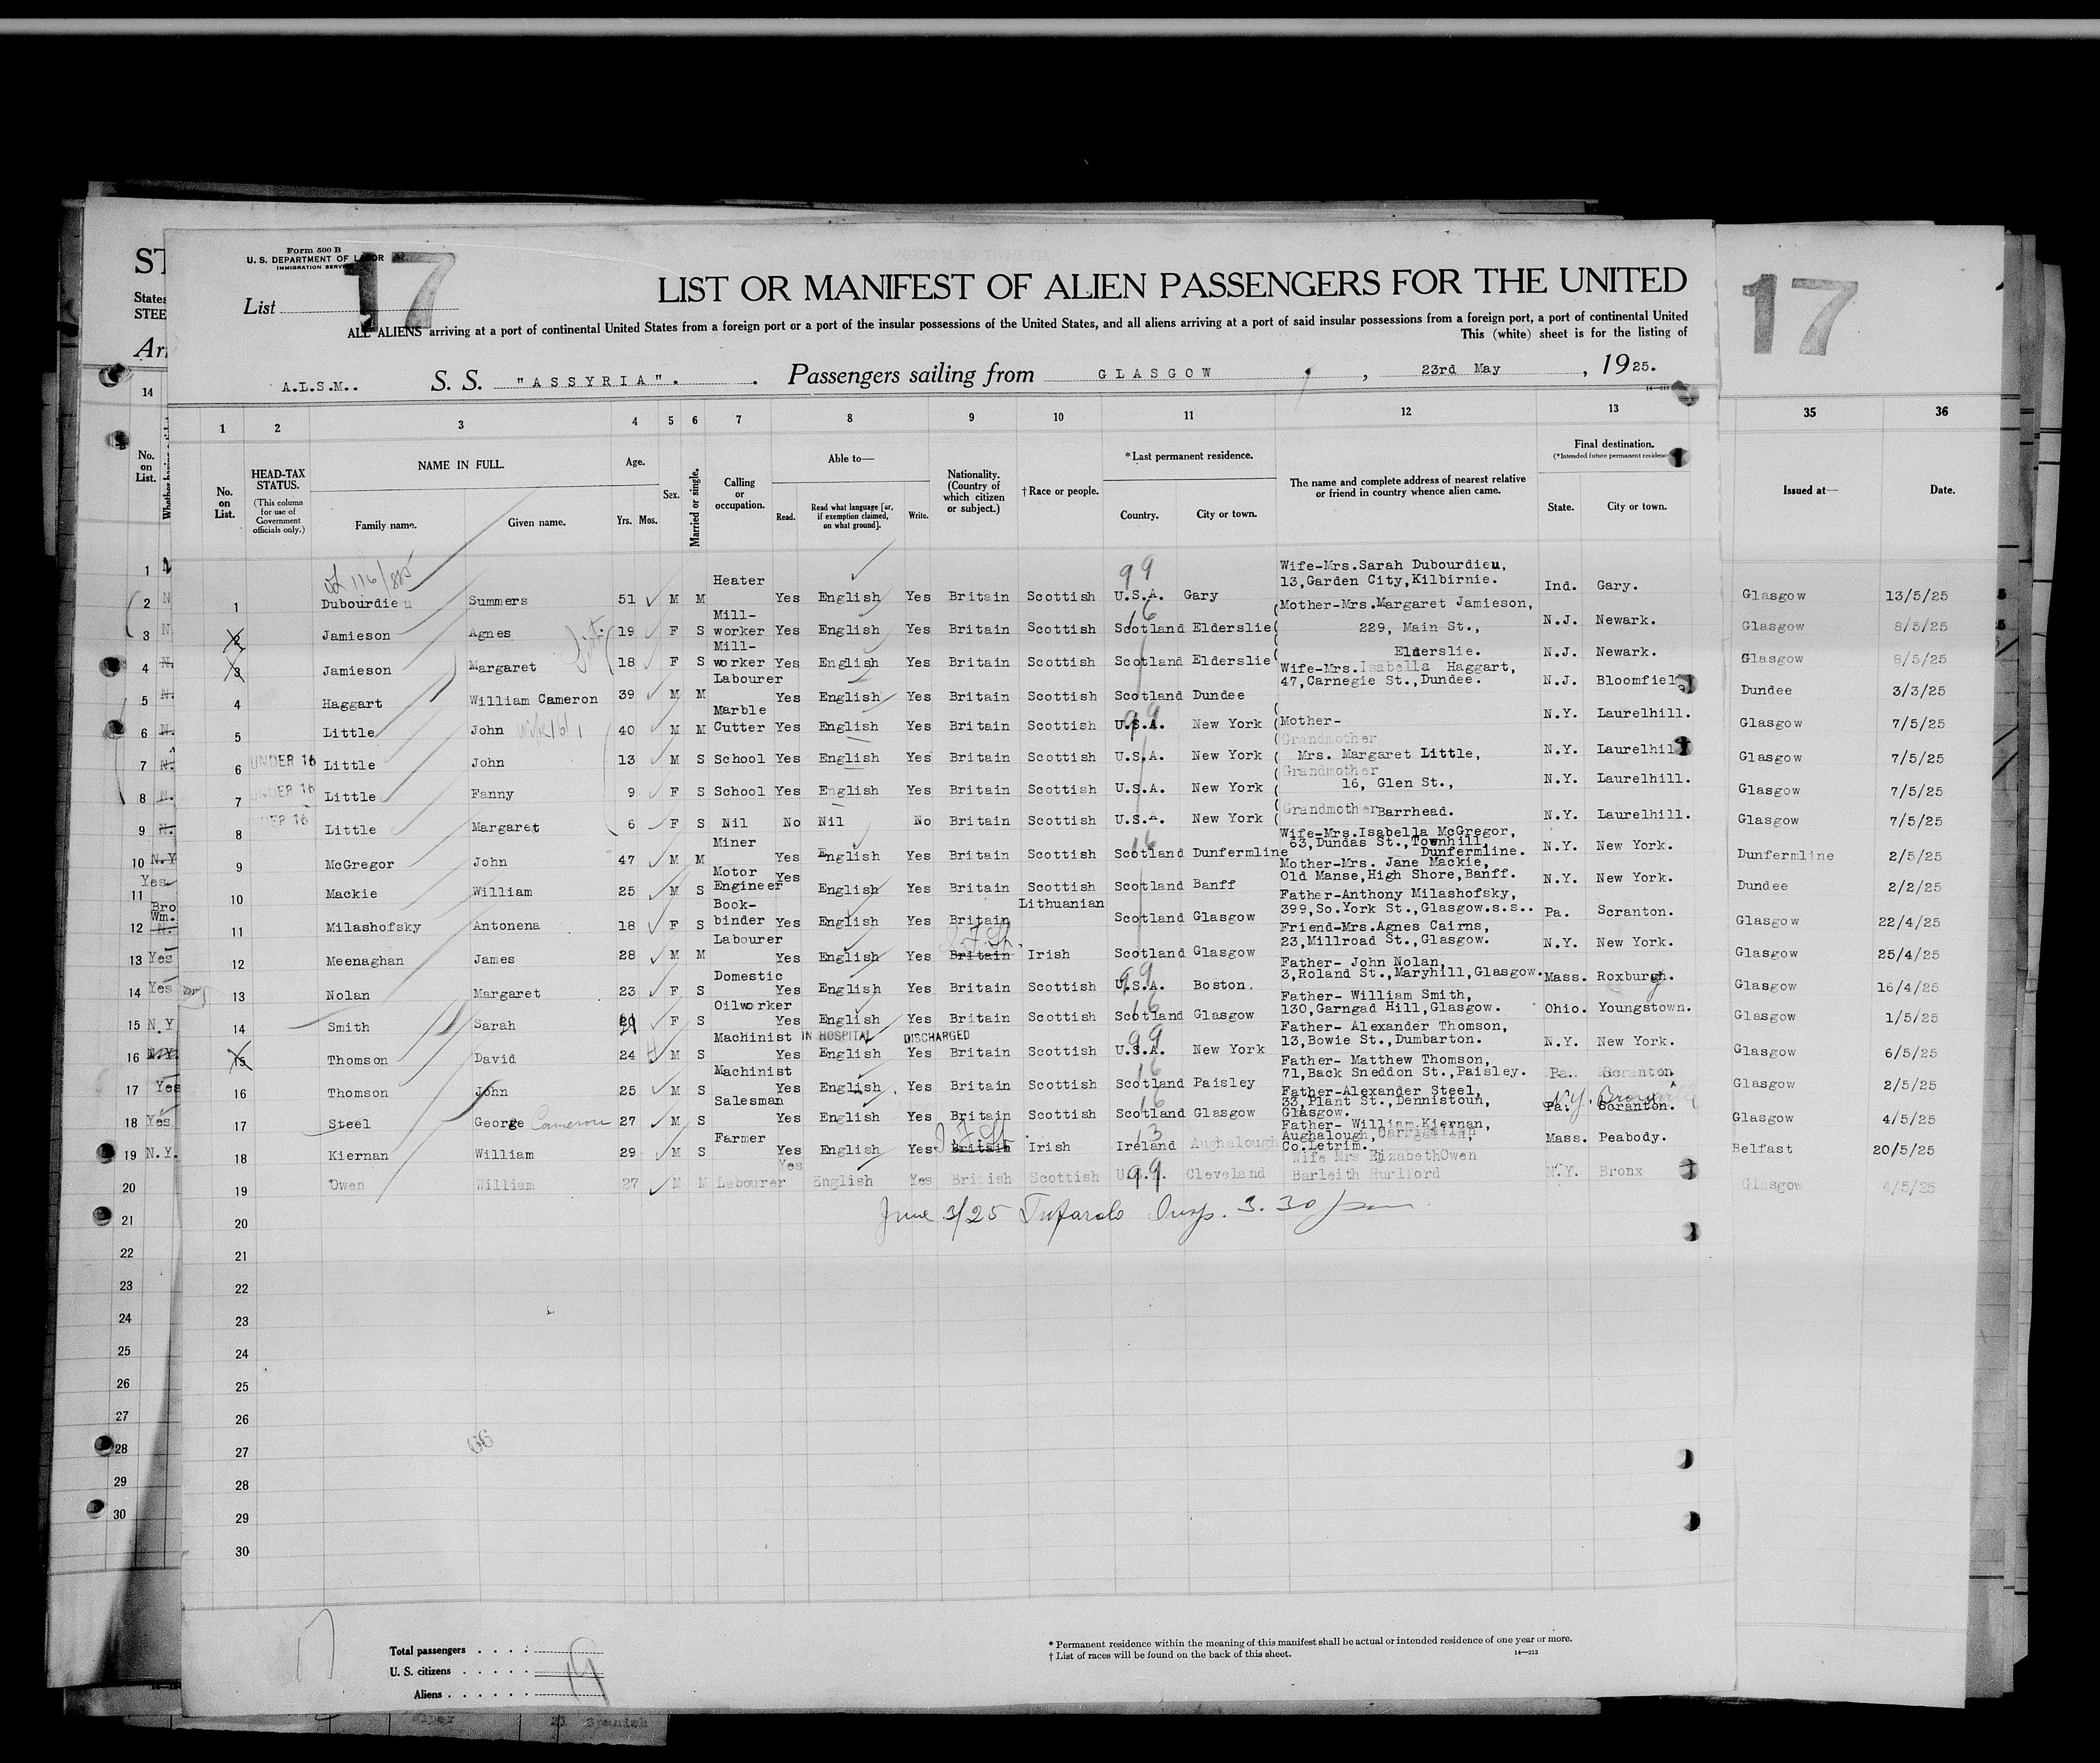 Form 500 B
U. S. DEPARTMENT OF LABOR
IMMIGRATION SERVICE
17
List
LIST OR MANIFEST OF ALIEN PASSENGERS FOR THE UNITED
ALL ALIENS arriving at a port of continental United States from a foreign port or a port of the insular possessions of the United States, and all aliens arriving at a port of said insular possessions from a foreign port, a port of continental United
This (white) sheet is for the listing of
A.L.S.M.. S. S. "ASSYRIA". Passengers sailing from GLASGOW, 23rd May, 1925.
17
ST
States
STEE
14
No. on List.
1 2 3 4 5 6 7 8 9 10 11 12 13 35 36
No. on List.
HEAD-TAX STATUS.
(This column for use of Government officials only.)
NAME IN FULL.
Family name. Given name.
Age.
Yrs. Mos.
Sex.
Married or single.
Calling or occupation.
Able to—
Read. Read what language [or, if exemption claimed, on what ground]. Write.
Nationality. (Country of which citizen or subject.)
†Race or people.
*Last permanent residence.
Country. City or town.
The name and complete address of nearest relative or friend in country whence alien came.
Final destination.
(*Intended future permanent residence)
State. City or town.
Issued at— Date.
1 Dubourdieu Summers 51 M M Heater Yes English Yes Britain Scottish U.S.A. Gary Wife-Mrs.Sarah Dubourdieu, 13,Garden City,Kilbirnie. Ind. Gary. Glasgow 13/5/25
2 Jamieson Agnes 19 F S Mill-worker Yes English Yes Britain Scottish Scotland Elderslie Mother-Mrs.Margaret Jamieson, 229, Main St., N.J. Newark. Glasgow 8/5/25
3 Jamieson Margaret 18 F S Mill-worker Yes English Yes Britain Scottish Scotland Elderslie Elderslie. N.J. Newark. Glasgow 8/5/25
4 Haggart William Cameron 39 M M Labourer Yes English Yes Britain Scottish Scotland Dundee Wife-Mrs.Isabella Haggart, 47,Carnegie St.,Dundee. N.J. Bloomfield Dundee 3/3/25
5 Little John 40 M M Marble Cutter Yes English Yes Britain Scottish U.S.A. New York Mother- N.Y. Laurelhill. Glasgow 7/5/25
6 UNDER 16 Little John 13 M S School Yes English Yes Britain Scottish U.S.A. New York Grandmother Mrs. Margaret Little, N.Y. Laurelhill Glasgow 7/5/25
7 UNDER 16 Little Fanny 9 F S School Yes English Yes Britain Scottish U.S.A. New York Grandmother 16, Glen St., N.Y. Laurelhill. Glasgow 7/5/25
8 UNDER 16 Little Margaret 6 F S Nil No Nil No Britain Scottish U.S.A. New York Grandmother Barrhead. N.Y. Laurelhill. Glasgow 7/5/25
9 McGregor John 47 M M Miner Yes English Yes Britain Scottish Scotland Dunfermline Wife-Mrs.Isabella McGregor, 63,Dundas St.,Townhill, Dunfermline. N.Y. New York. Dunfermline 2/5/25
10 Mackie William 25 M S Motor Engineer Yes English Yes Britain Scottish Scotland Banff Mother-Mrs. Jane Mackie, Old Manse,High Shore,Banff. N.Y. New York. Dundee 2/2/25
11 Milashofsky Antonena 18 F S Book-binder Yes English Yes Britain Lithuanian Scotland Glasgow Father-Anthony Milashofsky, 399,So.York St.,Glasgow.s.s.. Pa. Scranton. Glasgow 22/4/25
12 Meenaghan James 28 M M Labourer Yes English Yes Britain Irish Scotland Glasgow Friend-Mrs.Agnes Cairns, 23,Millroad St.,Glasgow. N.Y. New York. Glasgow 25/4/25
13 Nolan Margaret 23 F S Domestic Yes English Yes Britain Scottish U.S.A. Boston. Father- John Nolan, 3,Roland St.,Maryhill,Glasgow. Mass. Roxburgh. Glasgow 16/4/25
14 Smith Sarah F S Oilworker Yes English Yes Britain Scottish Scotland Glasgow Father- William Smith, 130,Garngad Hill,Glasgow. Ohio. Youngstown. Glasgow 1/5/25
15 Thomson David 24 M S Machinist IN HOSPITAL DISCHARGED Yes English Yes Britain Scottish U.S.A. New York Father- Alexander Thomson, 13,Bowie St.,Dumbarton. N.Y. New York. Glasgow 6/5/25
16 Thomson John 25 M S Machinist Yes English. Yes Britain Scottish Scotland Paisley Father- Matthew Thomson, 71,Back Sneddon St.,Paisley. Pa. Scranton Glasgow 2/5/25
17 Steel George Cameron 27 M S Salesman Yes English Yes Britain Scottish Scotland Glasgow Father-Alexander Steel, 33,Plant St.,Dennistoun, Glasgow. Pa. Scranton. N.Y. Glasgow 4/5/25
18 Kiernan William 29 M S Farmer Yes English Yes Britain Irish Ireland Aughalough Father- William Kiernan, Aughalough,Carrigallan, Co.Letrim. Mass. Peabody. Belfast 20/5/25
19 Owen William 27 M M Labourer Yes English Yes British Scottish U.S.A. Cleveland Wife Mrs ElizabethOwen Barleith Hurlford N.Y. Bronx Glasgow 4/5/25
20 June 3/25 Insp. 3.30 pm
21
22
23
24
25
26
27
28
29
30
66
17
Total passengers
U. S. citizens
Aliens
19
* Permanent residence within the meaning of this manifest shall be actual or intended residence of one year or more.
† List of races will be found on the back of this sheet.
14—213
Spanish